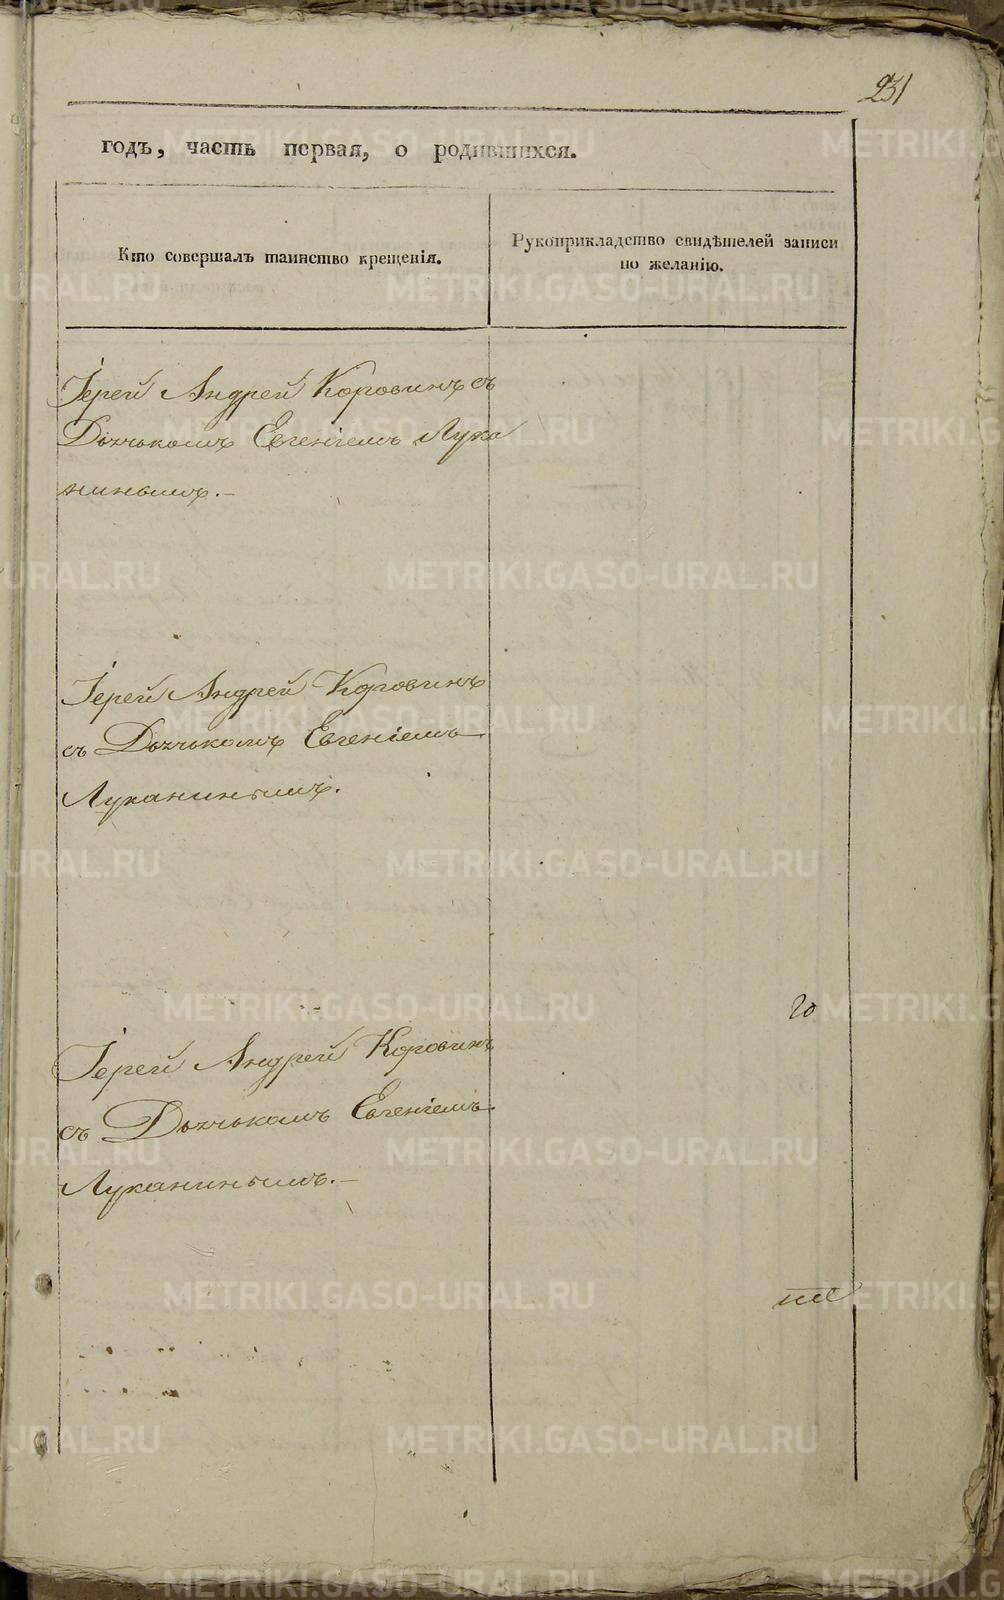 231
годъ, часть первая, о родившихся.
Кто совершалъ таинство крещенія.
Рукоприкладство свидѣтелей записи
по желанію.
Іерей Андрей Коровинъ съ
Дьячькомъ Евгеніемъ Лука
нинымъ.–
Іерей Андрей Коровинъ
съ Дьячькомъ Евгеніемъ
Луканинымъ.
20
Іерей Андрей Коровинъ
съ Дьячькомъ Евгеніемъ
Луканинымъ.–
METRIKI.GASO-URAL.RU